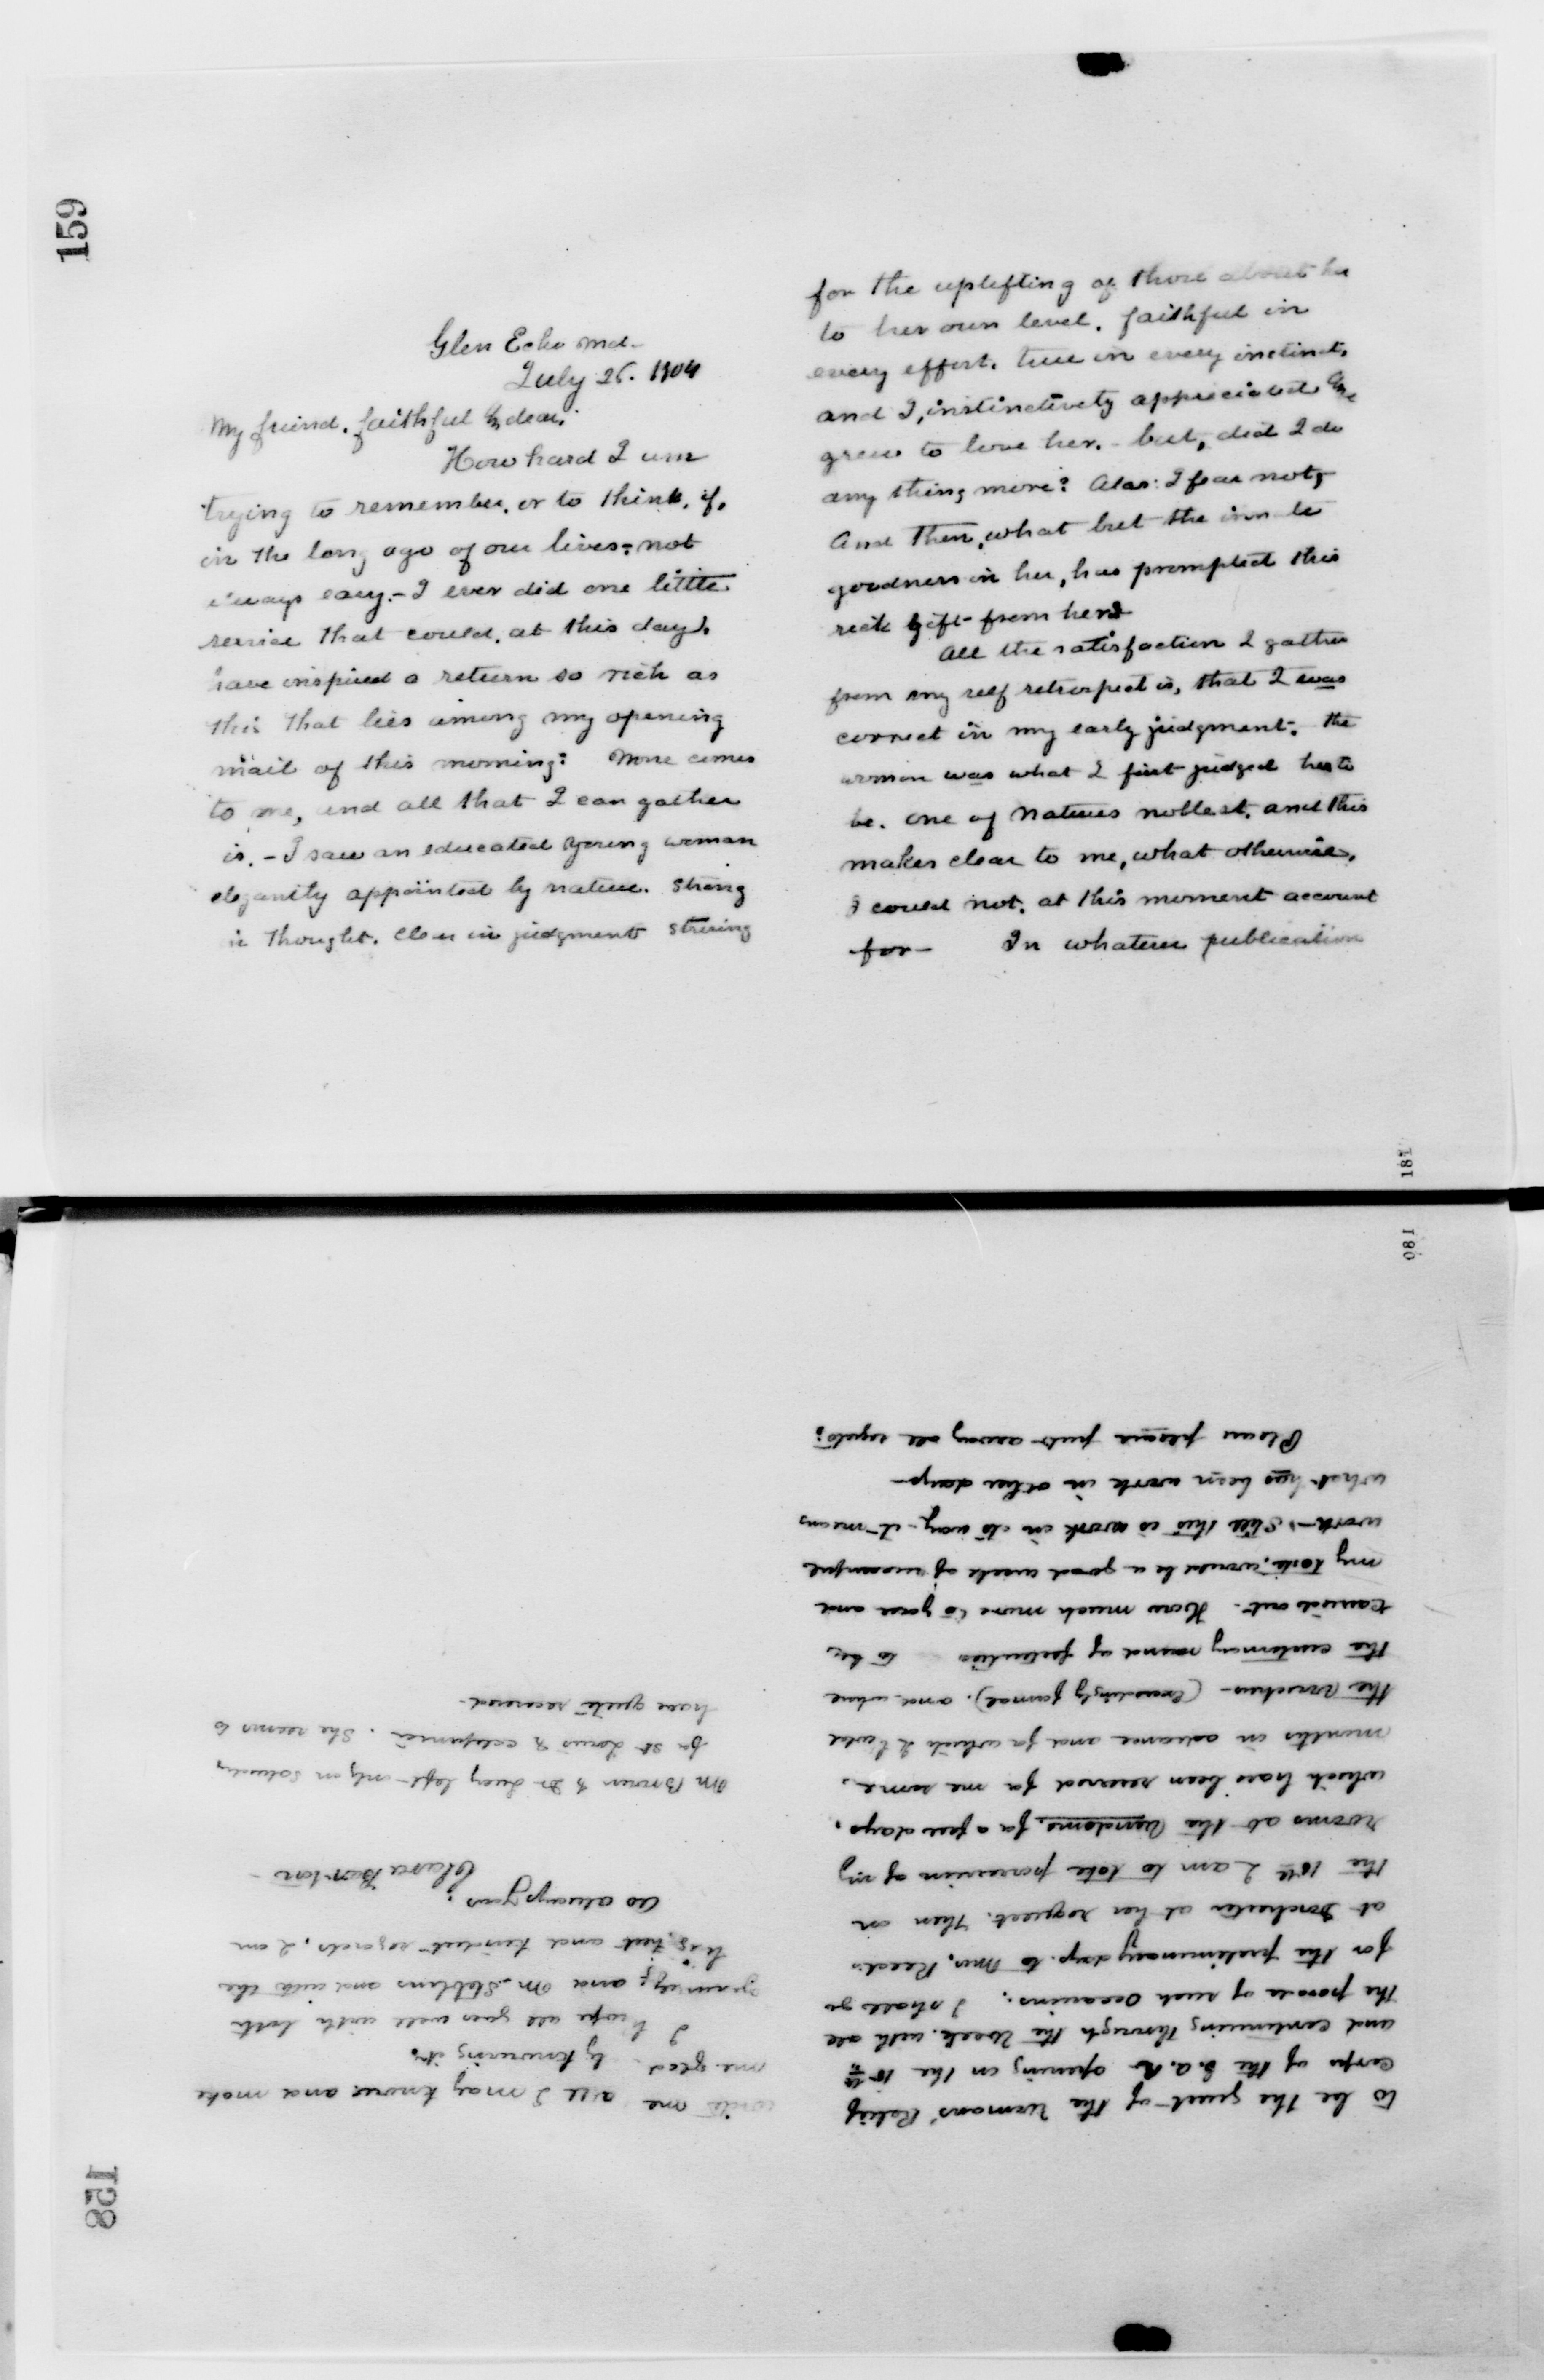 159
Glen Echo Md-
July 26. 1904
My friend. faithful & dear.
How hard I am
trying to remember, or to think, if,
in the long ago of our lives - not
always easy - I ever did one little
service that could, at this day,
have inspired a return so rich as
this that lies among my opening
mail of this morning: None comes
to me, and all that I can gather
is, - I saw an educated young woman
elegantly appointed by nature. Strong
in thought. Clear in judgment striving
for the uplifting of those about her
to her own level, faithful in
every effort. true in every instinct,
and I, instinctively appreciated &
grew to love her. - but, did I do
any thing more? Alas: I fear not,
And then, what but the innate
goodness in her, has prompted this
rich gift from her
All the satisfaction I gather
from my self retrospect is, that I was
correct in my early judgment. the
woman was what I first judged her to
be. one of natures noblest, and this
makes clear to me, what otherwise,
I could not, at this moment account
for - In whatever publication
181
180
to be the guest of the Womans' Relief
Corps of the G.A.R. opening on the 15th
and continuing through the Week. with all
the parade of such occasions. I shall go
for the preliminary days to Mrs. Reeds
at Dorchester at her request. Then on
the 15th I am to take possession of my
rooms at the Vendome, for a few days,
which have been reserved for me some
months in advance and for which I hold
the vouchers - (exceedingly formal). and where
the customary round of festivities to be
carried out. How much more to your and
my taste, would be a good week of successful
work - Still this is work in its way - it means
what has been work in other days -
Please please put away all regrets;
write me all I may know and make
me glad by knowing it.
I hope all goes well with both
yourself and Mr. Stebbins and with the
best and kindest regards, I am
As always yours
Clara Barton -
Mr Brown & Dr Lucy left only on Saturday
for St Louis & California. She seems to
have quite recovered -
158